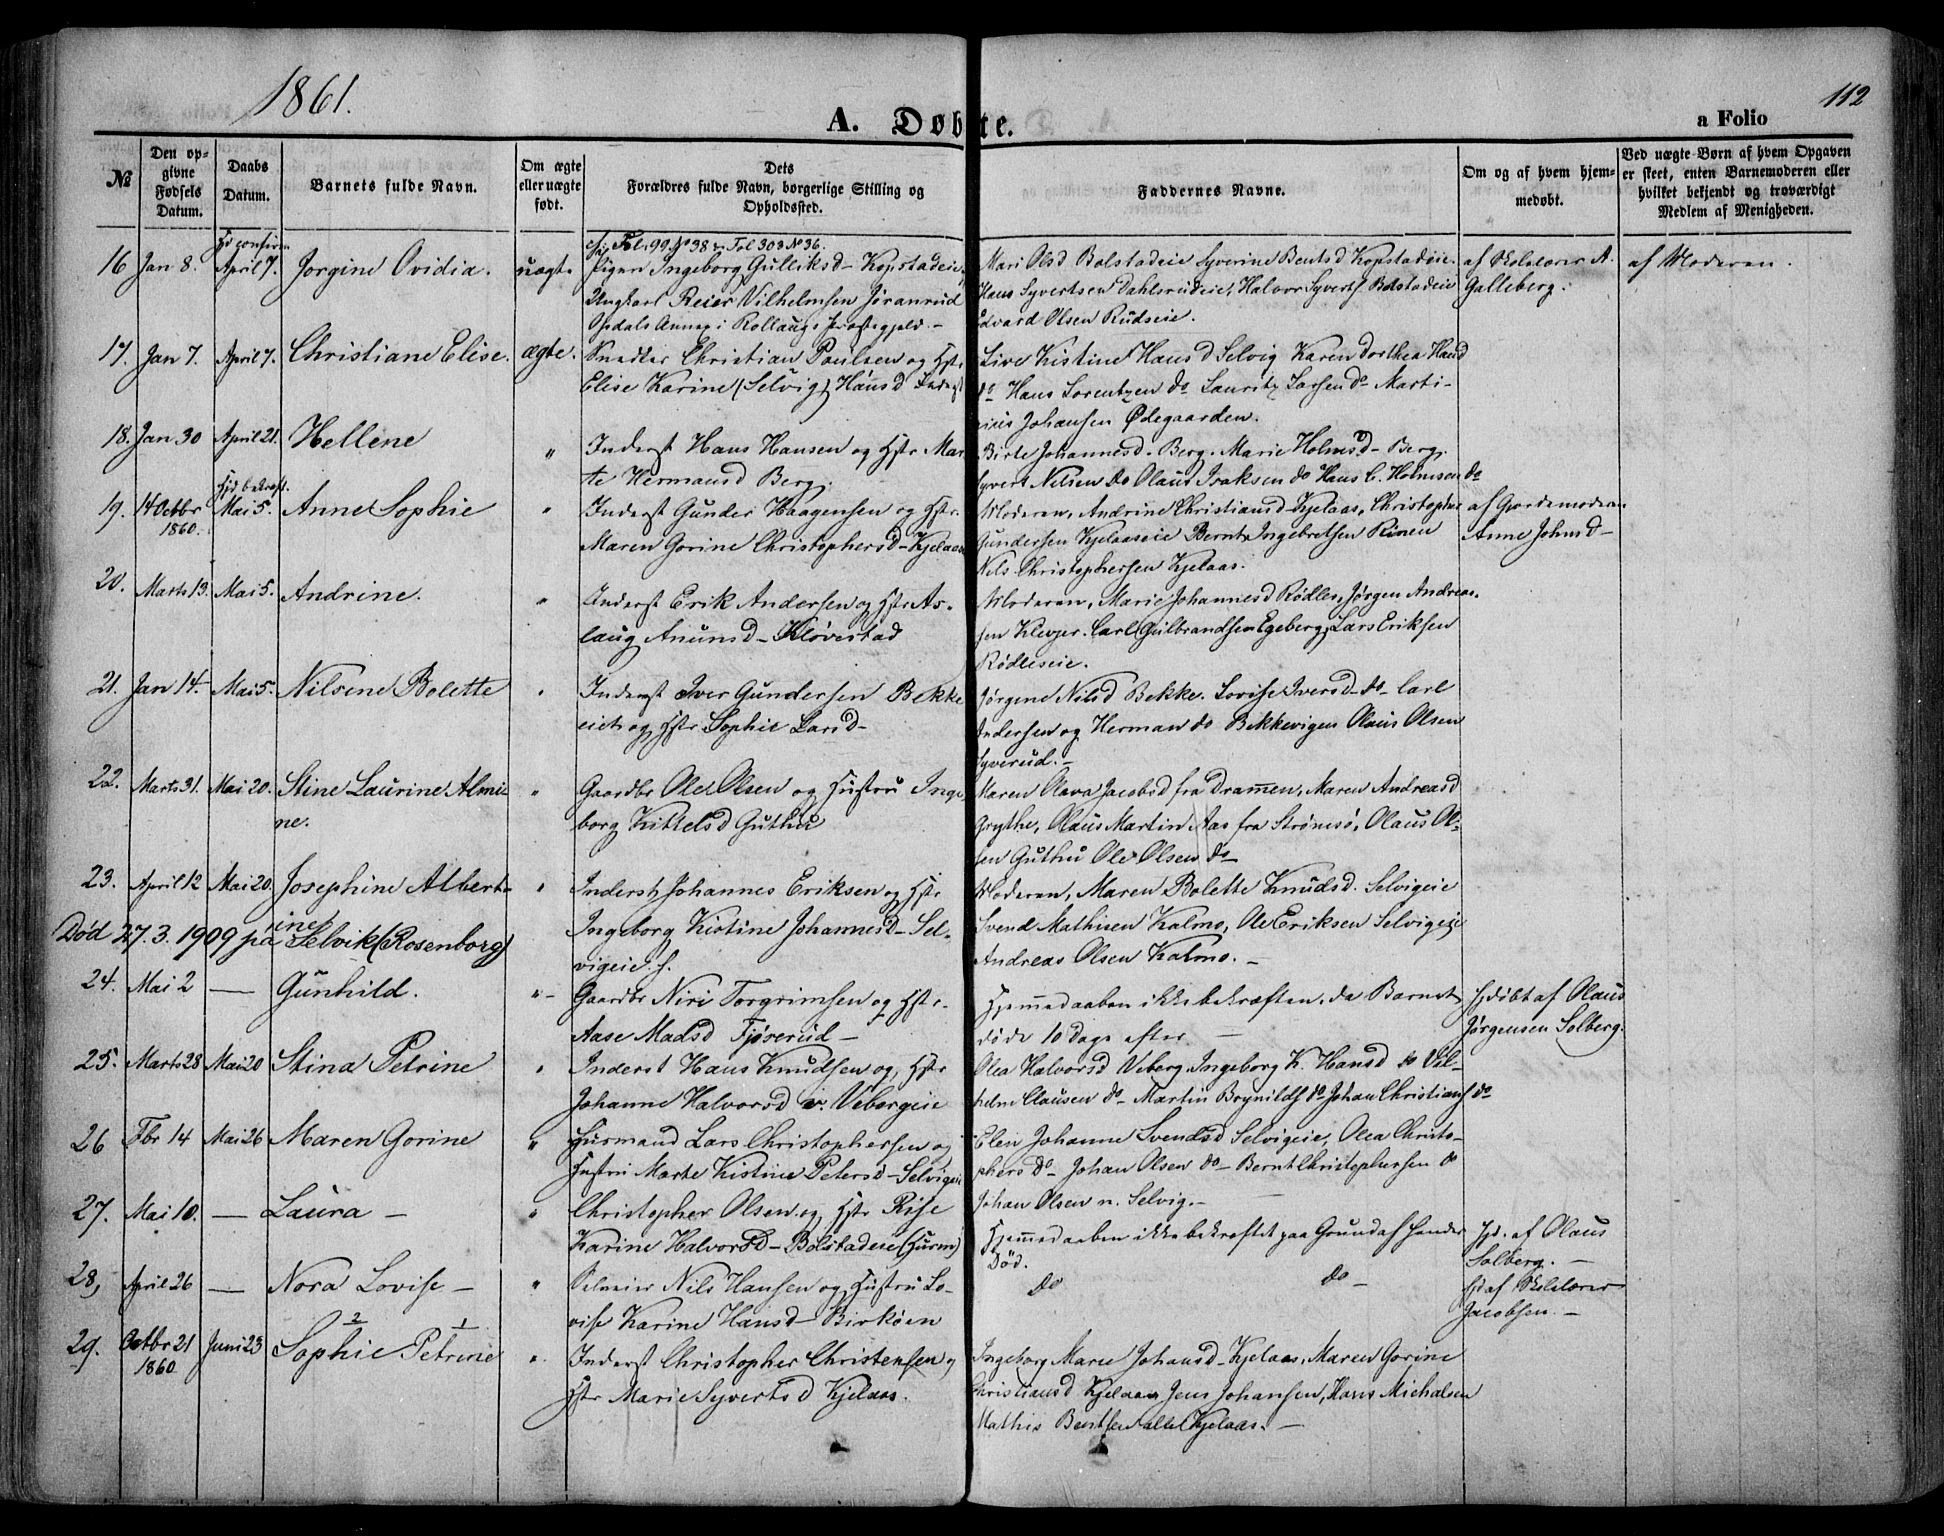 1861.
112
A. Døbte.
a Folio
№
Den opgivne Fødsels Datum.
Daabs Datum.
Barnets fulde Navn.
Om ægte eller uægte født.
Dets Forældres fulde Navn, borgerlige Stilling og Opholdssted.
Faddernes Navne.
Om og af hvem hjemmedøbt.
Ved uægte Børn af hvem Opgaven er skeet, enten Barnemoderen eller hvilket bekjendt og troværdigt Medlem af Menigheden.
Fol. 99 № 38 Fol 303 № 36.
16 Jan 8. April 7. Jorgine Ovidia. uægte Pigen Ingeborg Gulliksd- Kopstadeie,
Ungkarl Reier Vilhelmsen Jøranrud
Opdals Annex i Rollaugs Præstegjeld.-
Mari Olsd Bolstadeie Syverine Bentsd Kopstadeie.
Hans Syvertsen Dahlsrudeie, Halvor Syverts Bolstadeie
Edvard Olsen Rudseie.
af Skolelærer A.
Galleberg.
af Moderen.
17. Jan 7. April 7. Christiane Elise. ægte. Snedker Christian Poulsen og Hstr.
Elise Karine (Selvig) Hansd Inderst
Live Kistine Hansd Selvig Karen Dorthea Hansd
do Hans Lorentzen do Lauritz Larsen do Marti-
nius Johansen Ødegaarden.
18. Jan 30 April 21. Hellene " Inderst Hans Hansen og Hstr. Mar
te Hermansd Berg.
Birte Johannesd. Berg. Marie Holmsd- Berg.
Syvert Nilsen do Olaus Isaksen do Hans C. Holmsen do
19. 14 Octbr 1860. Hjd bekræft. Mai 5. Anne Sophie " Inderst Gunder Haagensen og Hstr.
Maren Gorine Christophersd- Kjelaas
Moderen, Andrine Christiansd- Kjelaas, Christopher
Gundersen Kjelaaseie Bernt Ingebretsen Rinen
Nils Christophersen Kjelaas.
af Gjordemoderen
Anne Johnsd-
20. Marts 13. Mai 5. Andrine. " Inderst Erik Andersen og Hstr As-
laug Anunsd- Kløvestad
Moderen, Marie Johannesd Rødles, Jørgen Andreas-
sen Klevjer. Carl Gulbrandsen Egeberg, Lars Eriksen
Rødleseie.
21. Jan 14. Mai 5. Nilsene Bolette " Inderst Iver Gundersen Bekke
eie og Hstr Sophie Larsd-
Jørgine Nilsd Bekke. Lovise Iversd- do- Carl
Andersen og Herman do Bekkevigen Olaus Olsen
Syverud.-
22. Marts 31. Mai 20. Stine Laurine Almi-
ne.
" Gaardbr Ole Olsen og Hustru Inge
borg Kittelsd Guthu
Maren Olava Jacobsd fra Drammen, Maren Andreasd
Grythe, Olaus Martin Aas fra Strømsø, Olaus Ol-
sen Guthu Ole Olsen do
23. April 12 Mai 20. Josephine Albert-
ine
" Inderst Johannes Eriksen og Hstr
Ingeborg Kistine Johannesd- Sel-
vigeie.
Død 27.3.1909 på Selvik (Rosenborg)
Moderen, Maren Bolette Knudsd. Selvigeie
Svend Mathisen Kalmo, Ole Eriksen Selvigeie
Andreas Olsen Kalmo.-
24. Mai 2 — Gunhild. "- Gaardbr Niri Torgrimsen og Hstr.
Aase Madsd Fjøserud-
Hjemmedaaben ikke bekræften, da Barnet
døde 10 Dage efter —
Hjdøbt af Olaus
Jørgensen Solberg.
25. Marts 28 Mai 20 Stina Petrine " Inderst Hans Knudsen og Hstr
Johanne Halvorsd Vebergeie
Olea Halvorsd Veberg Ingeborg K. Hansd do Vil-
helm Clausen do- Martin Brynilds do Johan Christians do
26 Fbr 14 Mai 26 Maren Gorine " Husmand Lars Christophersen og
Hustru Marte Kistine Petersd- Selvigeie
Elen Johanne Svendsd Selvigeie, Olea Christo-
phers do- Johan Olsen do- Bernt Christophersen do
Johan Olsen n. Selvig.-
27. Mai 10. — Laura — " Christopher Olsen og Hstr Rise
Karine Halvorsd- Bolstadeie (Husm)
Hjemmedaaben ikke bekræftet paa Grund af Hendes
Død.
Hjd. af Olaus
Solberg.-
28, April 26 — Nora Lovise — " Selveier Nils Hansen og Hustru Lo-
vise Karine Hansd- Birkøen
do do-
Hjd af Skolelærer
Jacobsen.-
29. Octbr 21 1860. Juni 23 Sophie Petrine " Inderst Christopher Christensen og
Hstr Marie Syvertsd Kjelaas.
Ingeborg Marie Johansd- Kjelaas, Maren Gorine
Christiansd Kjelaas Jens Johansen, Hans Michalsen
Mathis Bentsen alle Kjelaas.-